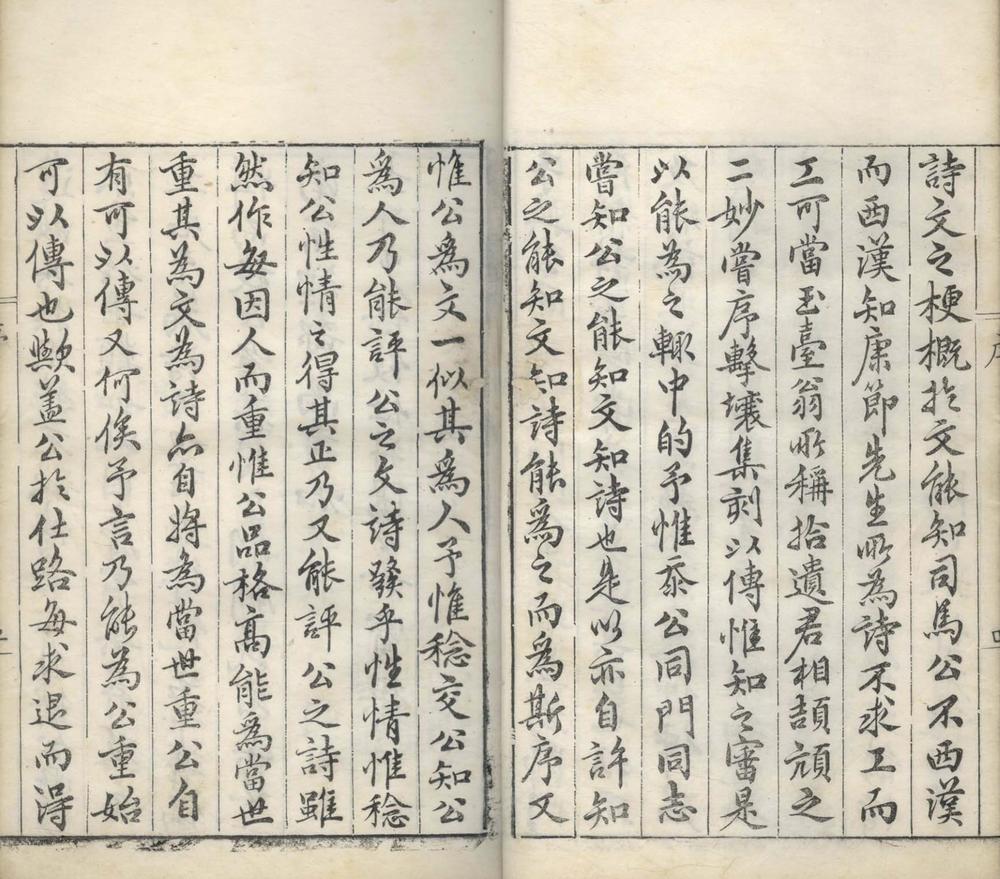 詩文之梗概於文能知司馬公不西漢
而西漢知康節先生所為詩不求工而
工可當玉臺翁所稱拾遺君相頡頏之
二妙嘗序擊壤集刻以傳惟知之審是
以能為之輙中的予惟忝公同門同志
嘗知公之能知文知詩也是以亦自許知
公之能知文知詩能為之而為斯序又
惟公為文一似其為人予惟稔交公知公
為人乃能評公之文詩發乎性情惟稔
知公性情之得其正乃又能評公之詩雖
然作每因人而重惟公品格高能為當世
重其為文為詩亦自將為當世重公自
有可以傳又何俟予言乃能為公重始
可以傳也歟蓋公於仕路每求退而得
序
四